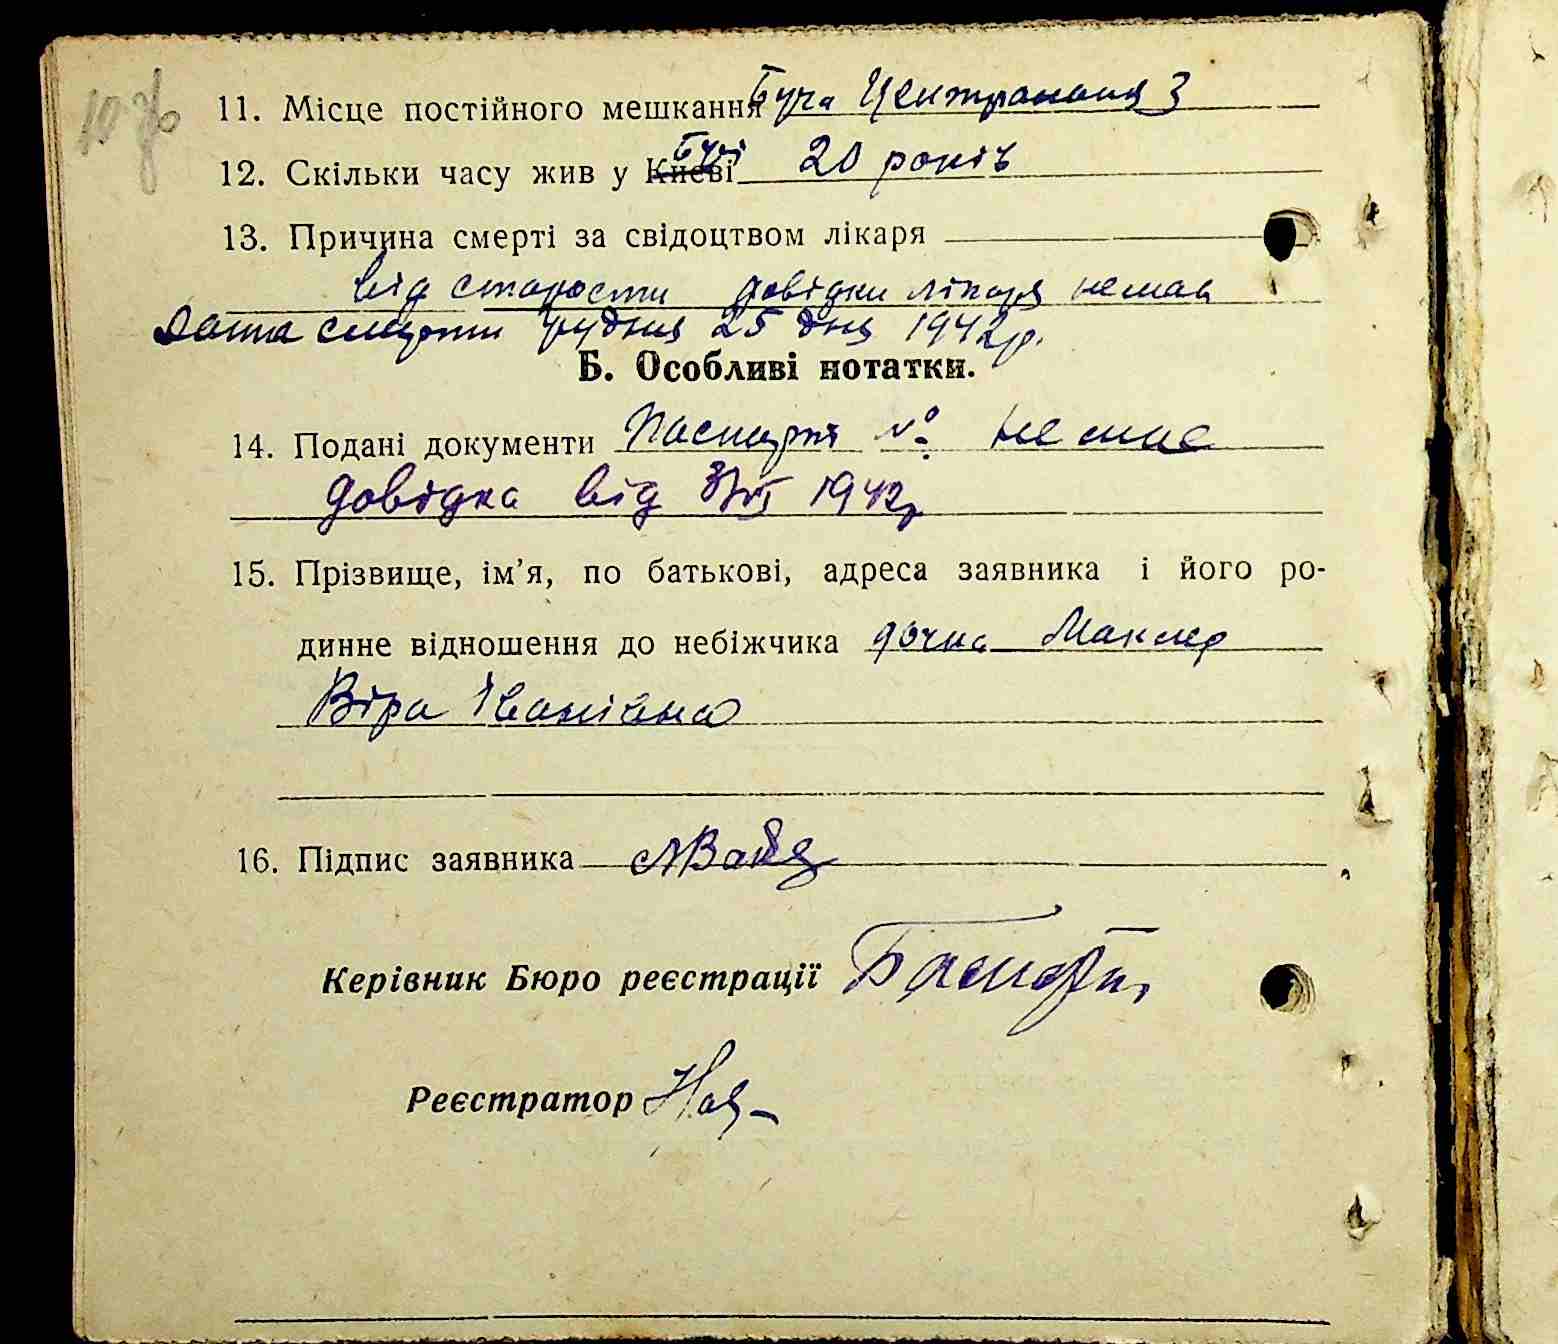 11. Місце постійного мешкання Буча Центральна 3
12. Скільки часу жив у Києві Бучі 20 років
13. Причина смерті за свідоцтвом лікаря
від старости довідки лікаря немає
Дата смерти грудня 25 дня 1942р.
Б. Особливі нотатки.
14. Подані документи Паспорт № немає
довідка від 1942р
15. Прізвище, ім’я, по батькові, адреса заявника і його ро-
динне відношення до небіжчика дочка
Віра Іванівна
16. Підпис заявника
Керівник Бюро реєстрації
Реєстратор